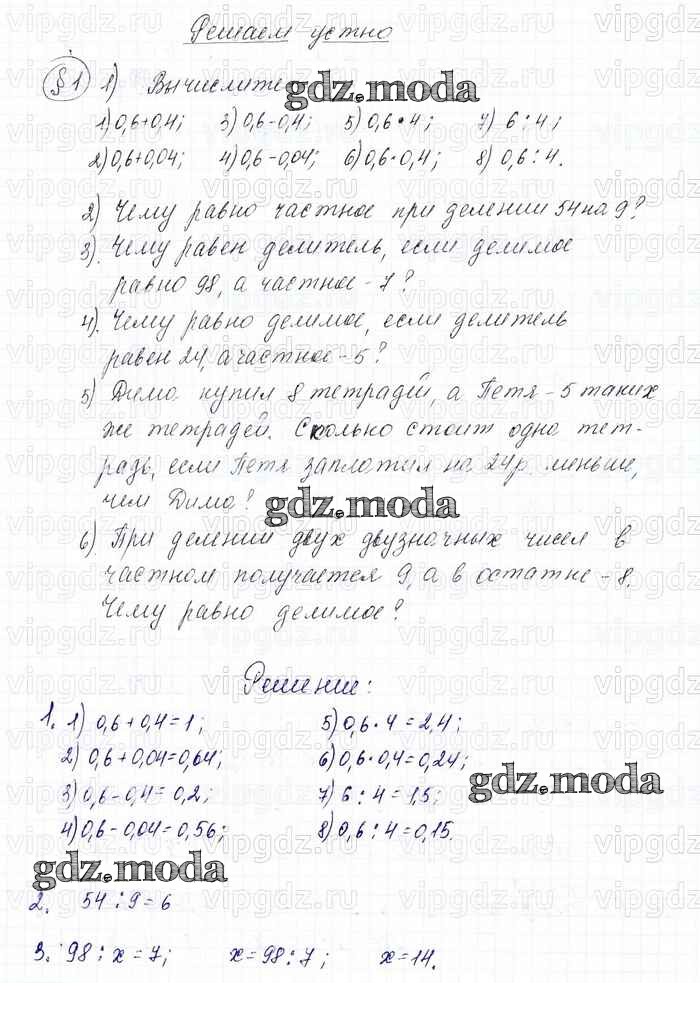 Решаем устно
§1 1) Вычислите
gdz.moda
1) 0,6+0,4; 3) 0,6-0,4; 5) 0,6·4; 7) 6:4;
2) 0,6+0,04; 4) 0,6-0,04; 6) 0,6·0,4; 8) 0,6:4.
2) Чему равно частное при делении 54 на 9?
3). Чему равен делитель, если делимое
равно 98, а частное - 7?
4). Чему равно делимое, если делитель
равен 24, а частное - 5?
5) Дима купил 8 тетрадей, а Петя - 5 таких
же тетрадей. Сколько стоит одна тет-
радь, если Петя заплатил на 24р. меньше,
чем Дима?
gdz.moda
6) При делении двух двузначных чисел в
частном получается 9, а в остатке - 8.
Чему равно делимое?
Решение:
1. 1) 0,6+0,4=1; 5) 0,6·4=2,4;
2) 0,6+0,04=0,64; 6) 0,6·0,4=0,24;
gdz.moda
3) 0,6-0,4=0,2; 7) 6:4=1,5;
4) 0,6-0,04=0,56; 8) 0,6:4=0,15.
gdz.moda
2. 54:9=6
3. 98:x=7; x=98:7; x=14.